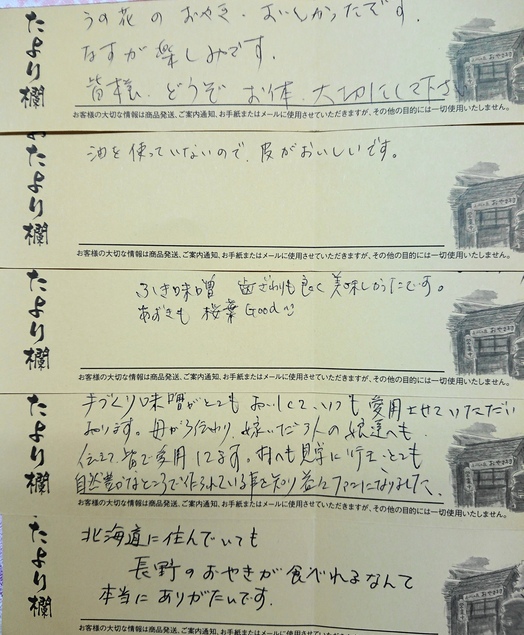 うの花のおやき、おいしかったです。
なすが楽しみです。
皆様、どうぞ お体、大切にして下さい
たより欄
お客様の大切な情報は商品発送、ご案内通知、お手紙またはメールに使用させていただきますが、その他の目的には一切使用いたしません。
油を使っていないので、皮がおいしいです。
おたより欄
お客様の大切な情報は商品発送、ご案内通知、お手紙またはメールに使用させていただきますが、その他の目的には一切使用いたしません。
ふき味噌 歯ざわりも良く美味しかったです。
あずきも 桜葉 Good
たより欄
お客様の大切な情報は商品発送、ご案内通知、お手紙またはメールに使用させていただきますが、その他の目的には一切使用いたしません。
手づくり味噌がとてもおいしくて、いつも愛用させていただい
おります。母から伝わり、嫁いだ3人の娘達へも
伝えて皆で愛用してます。村へも見学に行き、とても
自然豊かなところで作られている事を知り益々ファンになりました。
たより欄
お客様の大切な情報は商品発送、ご案内通知、お手紙またはメールに使用させていただきますが、その他の目的には一切使用いたしません。
北海道に住んでいても
長野のおやきが食べれるなんて
本当にありがたいです。
たより欄
お客様の大切な情報は商品発送、ご案内通知、お手紙またはメールに使用させていただきますが、その他の目的には一切使用いたしません。